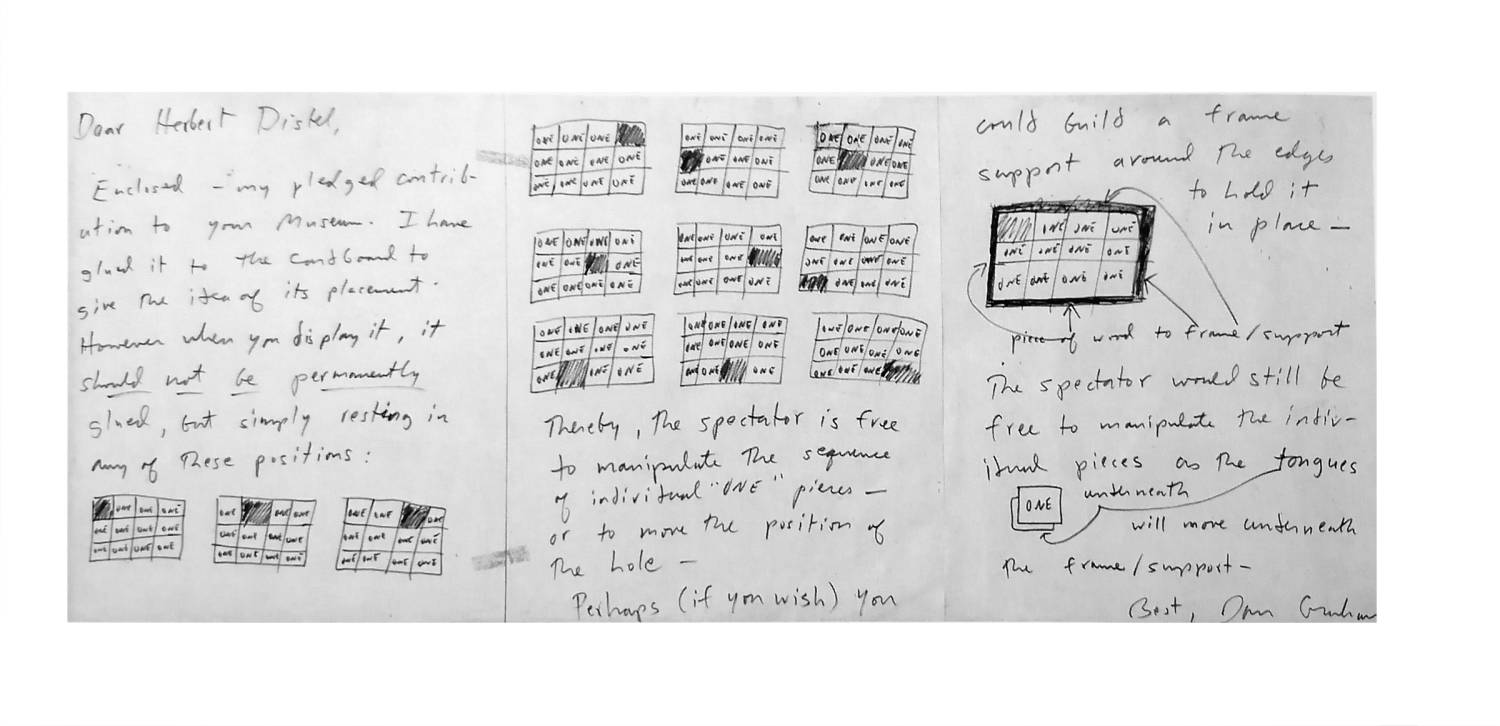 Dear Herbert Distel,
Enclosed – my pledged contrib-
ution to your Museum. I have
glued it to the cardboard to
give the idea of its placement.
However when you display it, it
should not be permanently
glued, but simply resting in
any of these positions:
ONE ONE ONE
ONE ONE ONE ONE
ONE ONE ONE ONE
ONE ONE ONE
ONE ONE ONE ONE
ONE ONE ONE ONE
ONE ONE ONE
ONE ONE ONE ONE
ONE ONE ONE ONE
ONE ONE ONE
ONE ONE ONE ONE
ONE ONE ONE ONE
ONE ONE ONE ONE
ONE ONE ONE
ONE ONE ONE ONE
ONE ONE ONE ONE
ONE ONE ONE
ONE ONE ONE ONE
ONE ONE ONE ONE
ONE ONE ONE
ONE ONE ONE ONE
ONE ONE ONE ONE
ONE ONE ONE
ONE ONE ONE ONE
ONE ONE ONE ONE
ONE ONE ONE ONE
ONE ONE ONE
ONE ONE ONE ONE
ONE ONE ONE ONE
ONE ONE ONE
ONE ONE ONE ONE
ONE ONE ONE ONE
ONE ONE ONE
ONE ONE ONE ONE
ONE ONE ONE ONE
ONE ONE ONE
Thereby, the spectator is free
to manipulate the sequence
of individual "ONE" pieces –
or to move the position of
the hole –
Perhaps (if you wish) you
could build a frame
support around the edges
to hold it
in place –
ONE ONE ONE
ONE ONE ONE ONE
ONE ONE ONE ONE
piece of wood to frame/support
The spectator would still be
free to manipulate the indiv-
idual pieces as the tongues
underneath
ONE
will move underneath
the frame/support –
Best, Dan Graham